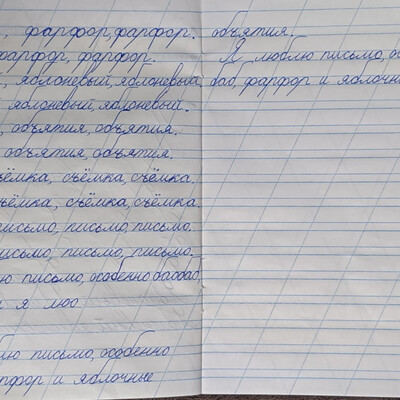 , фарфор, фарфор.
фарфор, фарфор.
, яблоневый, яблоневый,
яблоневый, яблоневый.
, объятия, объятия.
объятия, объятия.
съёмка, съёмка, съёмка.
съёмка, съёмка, съёмка.
письмо, письмо, письмо.
письмо, письмо, письмо.
ю письмо, особенно баобаб,
я люо
лю письмо, особенно
рфор и яблочные
объятия.
Я люблю письмо, ос
баб, фарфор и яблочн